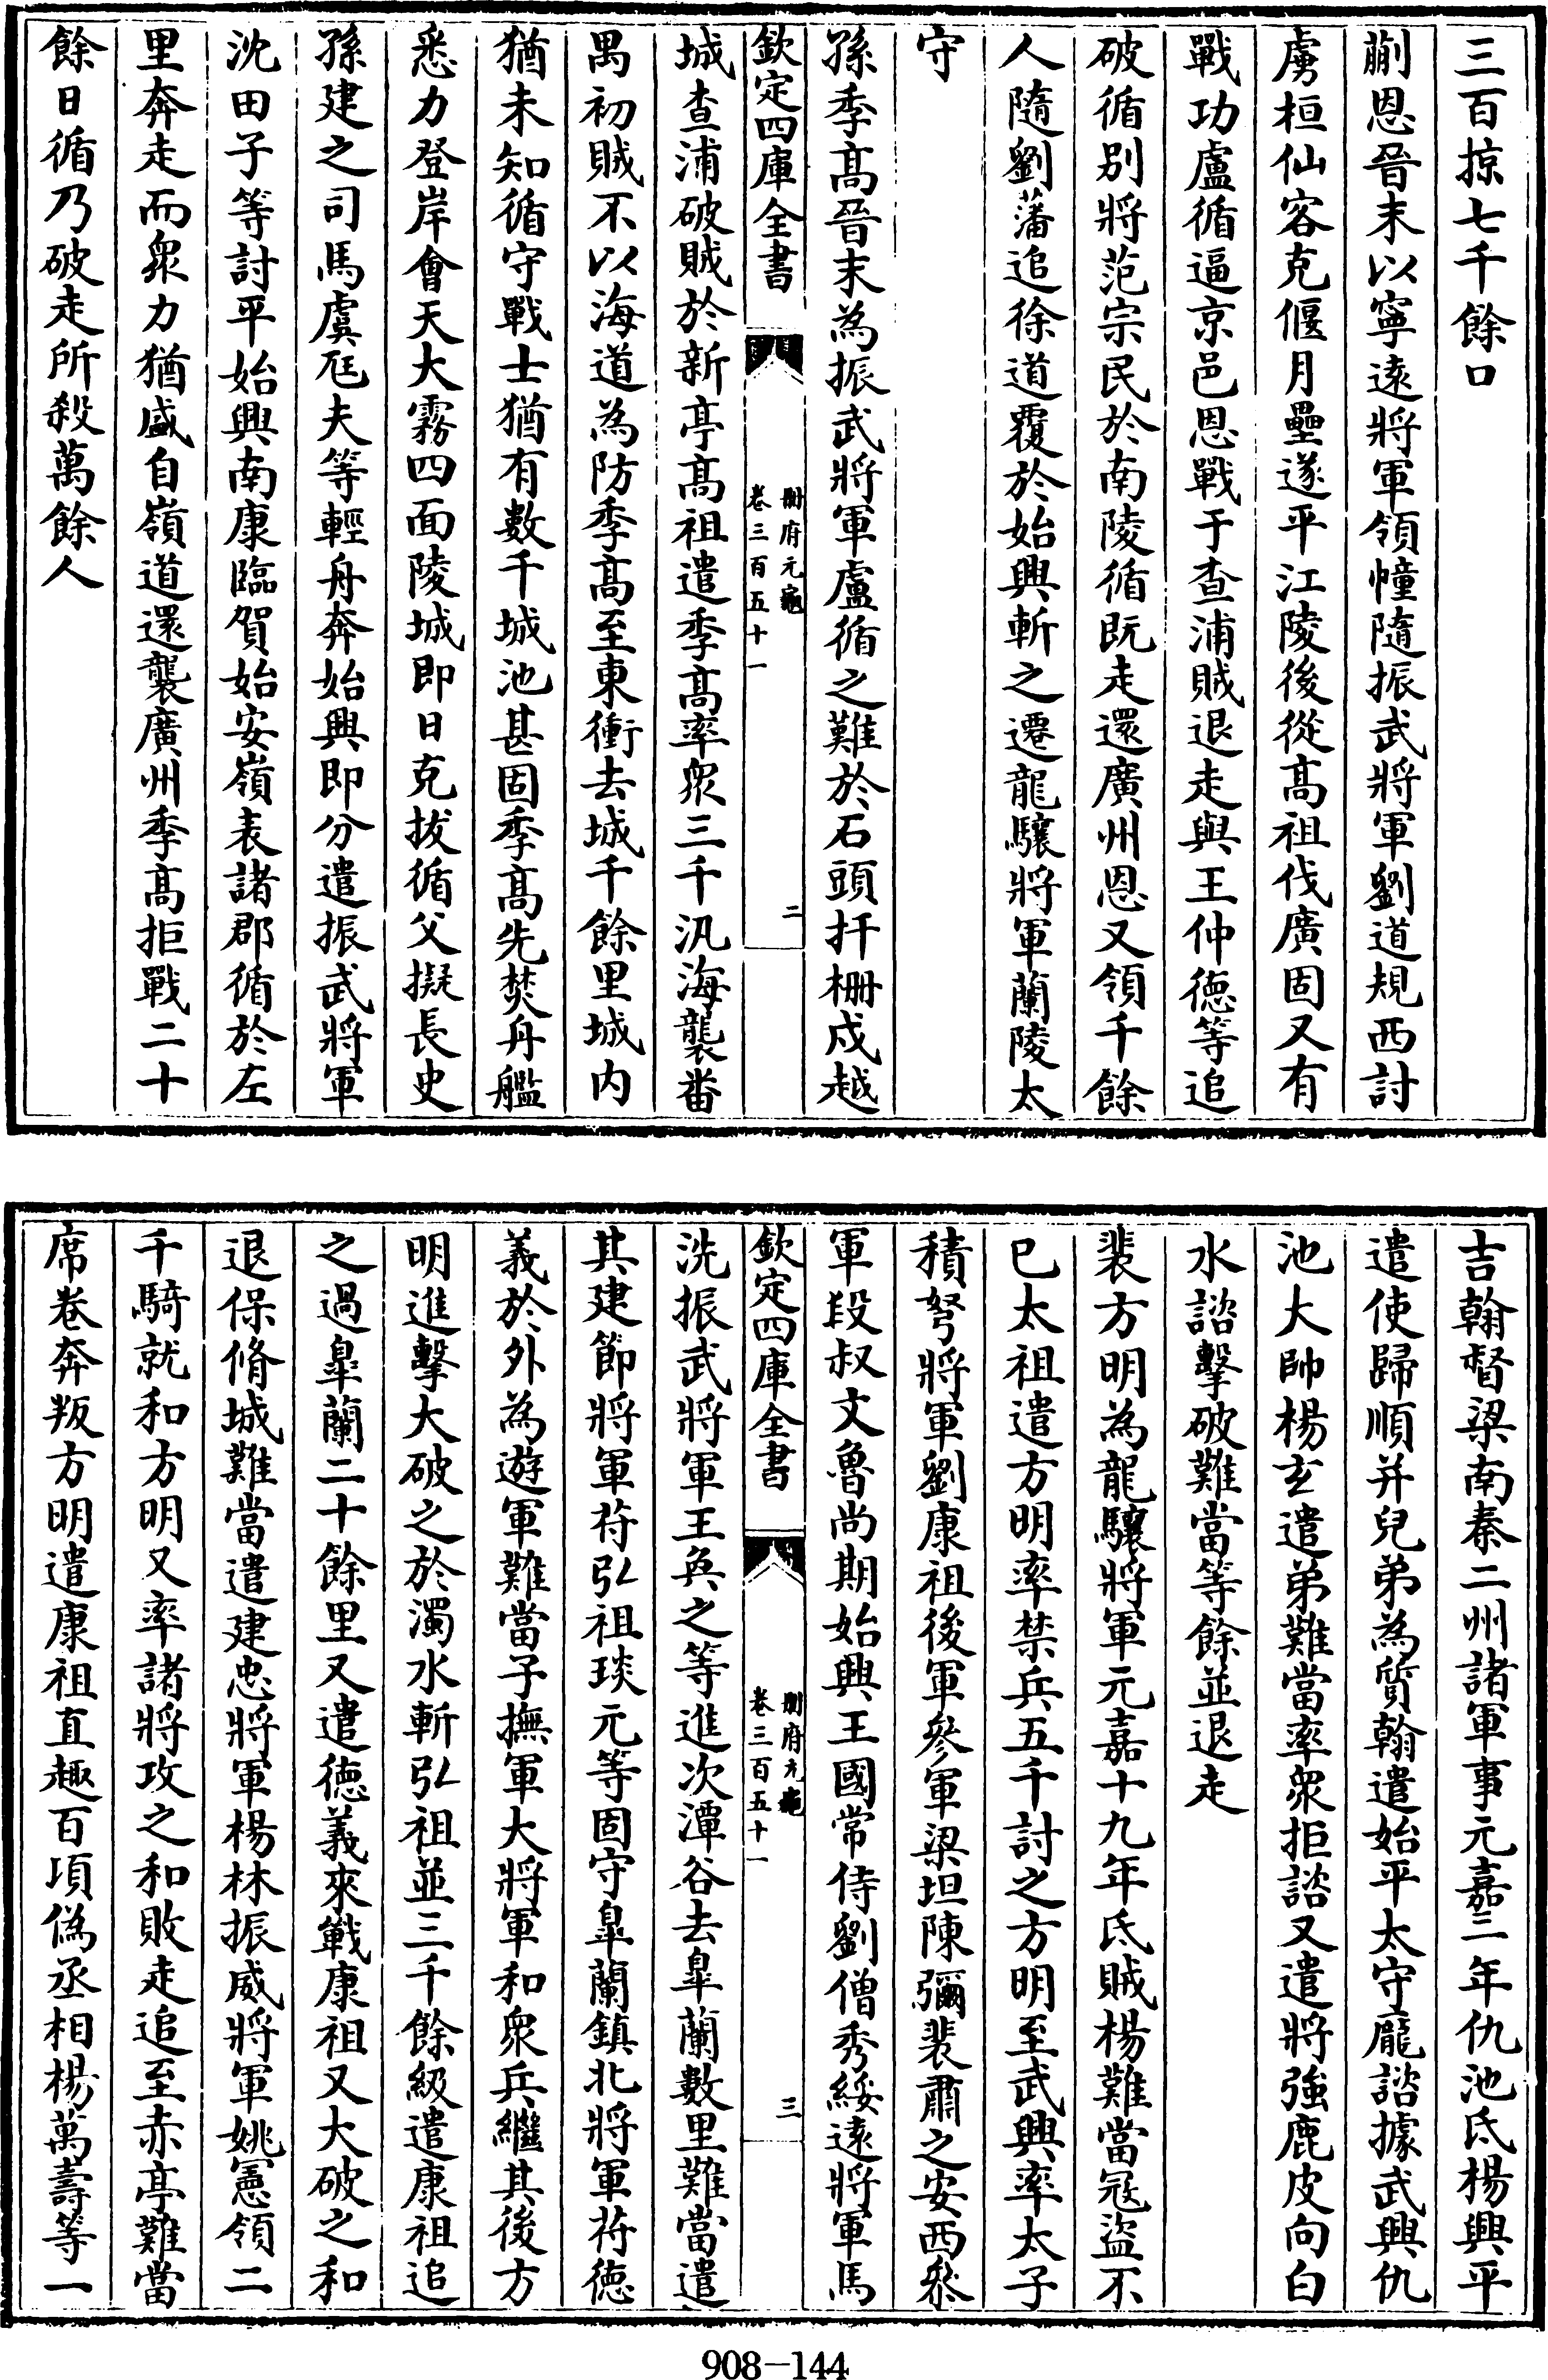 三百掠七千餘口
蒯恩晉末以寧遠將軍領幢隨振武將軍劉道規西討
虜桓仙客克偃月壘遂平江陵後從髙祖伐廣固又有
戰功盧循逼京邑恩戰于查浦賊退走與王仲徳等追
破循别將范宗民於南陵循既走還廣州恩又領千餘
人隨劉藩追徐道覆於始興斬之遷龍驤將軍蘭陵太
守
孫季髙晉末為振武將軍盧循之難於石頭扞栅戍越
欽定四庫全書
冊府元龜
卷三百五十一
二
城查浦破賊於新亭髙祖遣季髙率衆三千汎海襲番
禺初賊不以海道為防季髙至東衝去城千餘里城内
猶未知循守戰士猶有數千城池甚固季髙先焚舟艦
悉力登岸會天大霧四面陵城即日克拔循父擬長史
孫建之司馬虞尫夫等輕舟奔始興即分遣振武將軍
沈田子等討平始興南康臨賀始安嶺表諸郡循於左
里奔走而衆力猶盛自嶺道還襲廣州季髙拒戰二十
餘日循乃破走所殺萬餘人
吉翰督梁南秦二州諸軍事元嘉三年仇池氐楊興平
遣使歸順并兒弟為質翰遣始平太守龐諮據武興仇
池大帥楊𤣥遣弟難當率衆拒諮又遣將強鹿皮向白
水諮擊破難當等餘並退走
裴方明為龍驤將軍元嘉十九年氐賊楊難當冦盜不
已太祖遣方明率禁兵五千討之方明至武興率太子
積弩將軍劉康祖後軍參軍梁坦陳彌裴肅之安西叅
軍段叔文魯尚期始興王國常侍劉僧秀綏逺將軍馬
欽定四庫全書
冊府元龜
卷三百五十一
三
洗振武將軍王奐之等進次潭谷去皐蘭數里難當遣
其建節將軍苻弘祖琰元等固守皐蘭鎮北將軍苻徳
義於外為遊軍難當子撫軍大將軍和衆兵繼其後方
明進擊大破之於濁水斬弘祖並三千餘級遣康祖追
之過皐蘭二十餘里又遣徳義來戰康祖又大破之和
退保脩城難當遣建忠將軍楊林振威將軍姚憲領二
千騎就和方明又率諸將攻之和敗走追至赤亭難當
席卷奔叛方明遣康祖直趣百頃偽丞相楊萬壽等一
908-144